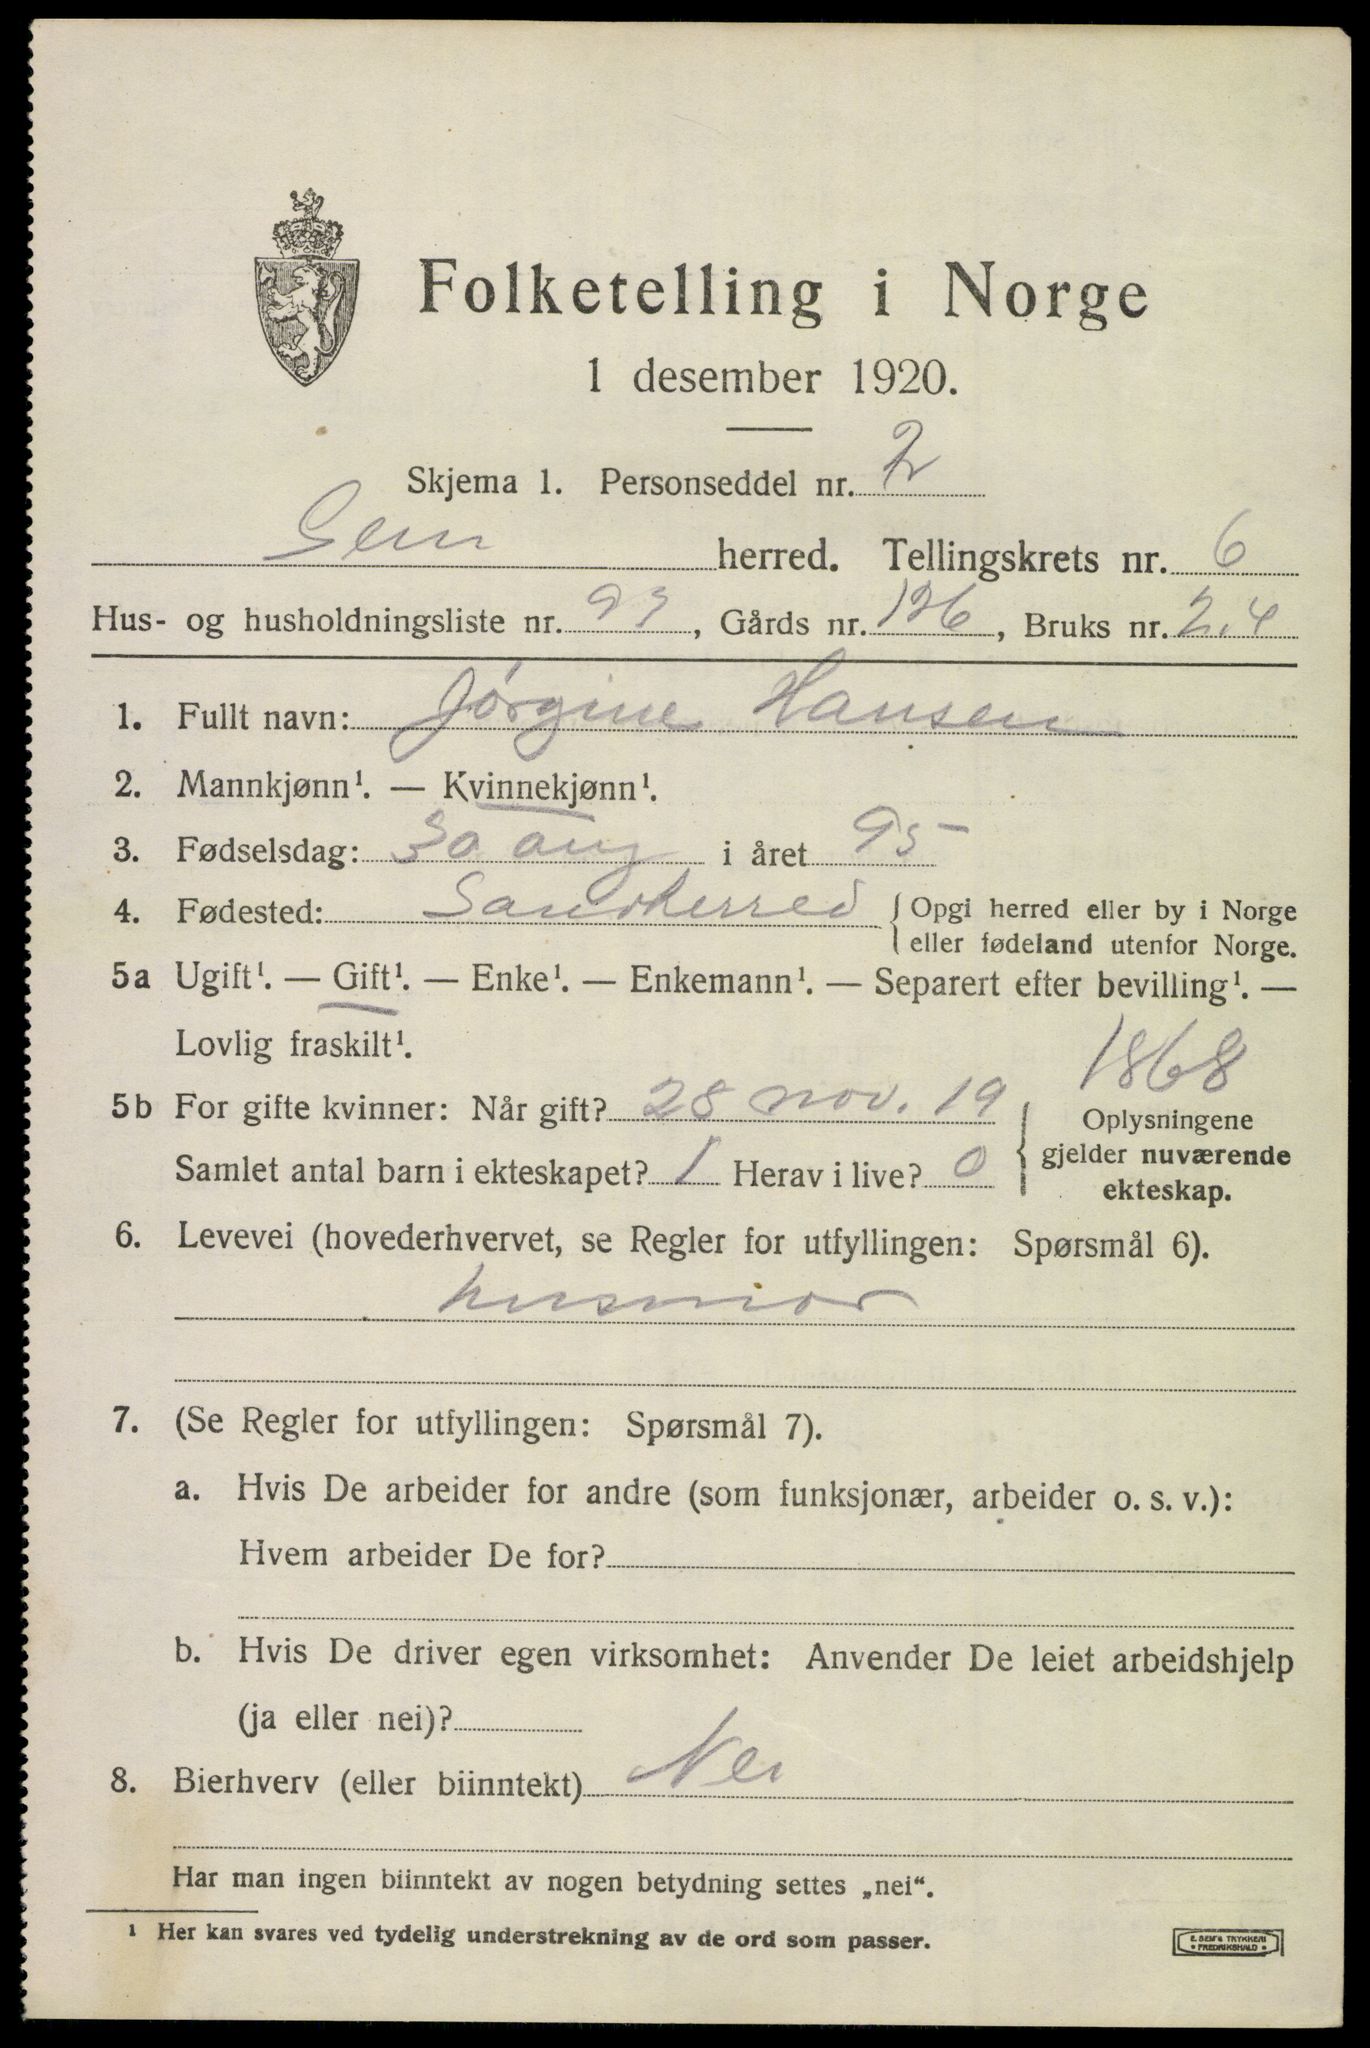 Folketelling i Norge
1 desember 1920.
Skjema 1. Personseddel nr. 2
Sem herred. Tellingskrets nr. 6
Hus- og husholdningsliste nr. 93, Gårds nr. 126, Bruks nr. 2.4
1. Fullt navn: Jørgine Hansen
2. Mannkjønn¹. — Kvinnekjønn¹.
3. Fødselsdag: 30 aug i året 95
4. Fødested: Sandherred { Opgi herred eller by i Norge
eller fødeland utenfor Norge.
5a Ugift¹. — Gift¹. — Enke¹. — Enkemann¹. — Separert efter bevilling¹. —
Lovlig fraskilt¹.
1868
5b For gifte kvinner: Når gift? 28 nov. 19 { Oplysningene
Samlet antal barn i ekteskapet? 1 Herav i live? 0 gjelder nuværende
ekteskap.
6. Levevei (hovederhvervet, se Regler for utfyllingen: Spørsmål 6).
husmor
7. (Se Regler for utfyllingen: Spørsmål 7).
a. Hvis De arbeider for andre (som funksjonær, arbeider o. s. v.):
Hvem arbeider De for?
b. Hvis De driver egen virksomhet: Anvender De leiet arbeidshjelp
(ja eller nei)?
8. Bierhverv (eller biinntekt) Nei
Har man ingen biinntekt av nogen betydning settes „nei“.
¹ Her kan svares ved tydelig understrekning av de ord som passer.
E. SEM'S TRYKKERI
FREDRIKSHALD